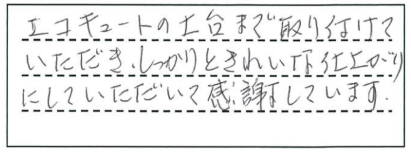 エコキュートの土台まで取り付けて
いただき、しっかりときれいな仕上がり
にしていただいて感謝しています.